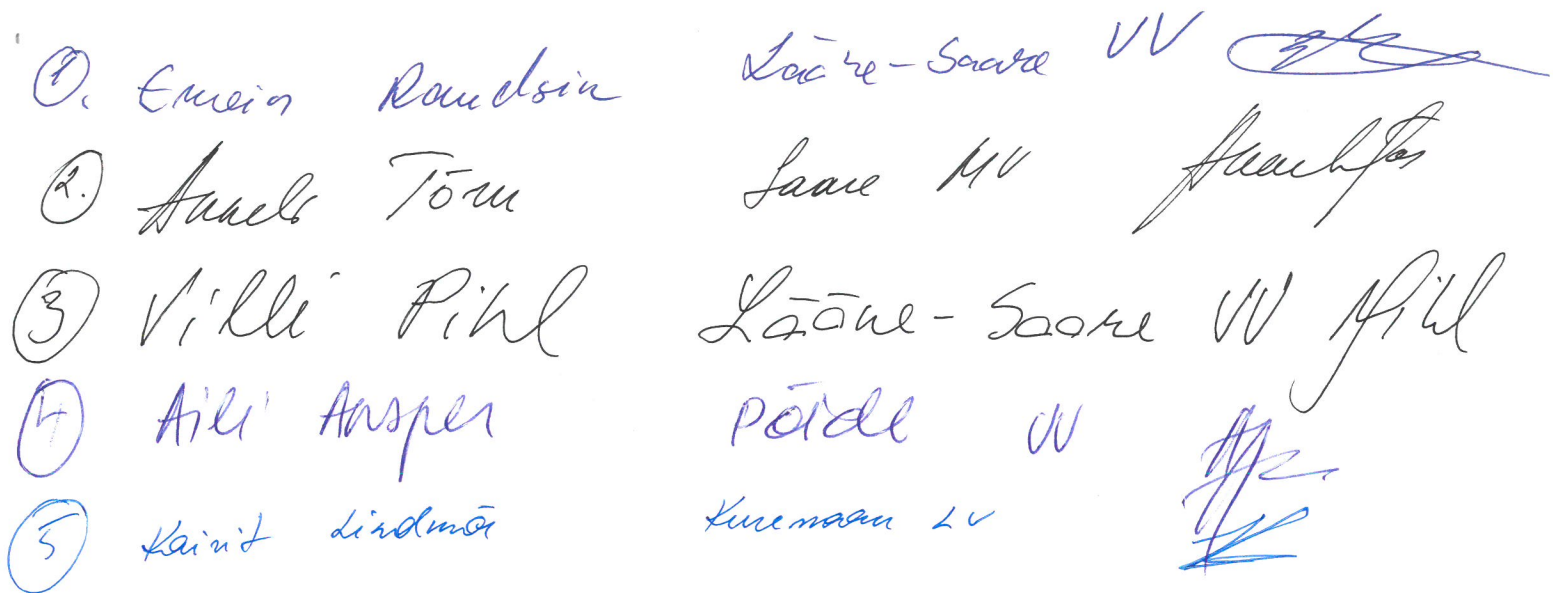 1. Raudsin Lääne-Saare VV
2. Anneli Tõru Saare MV
3 Villi Pihl Lääne-Saare VV Pihl
4 Aili Ansper Pöide VV
5 Kairit Lindmäe Kuressaare LV